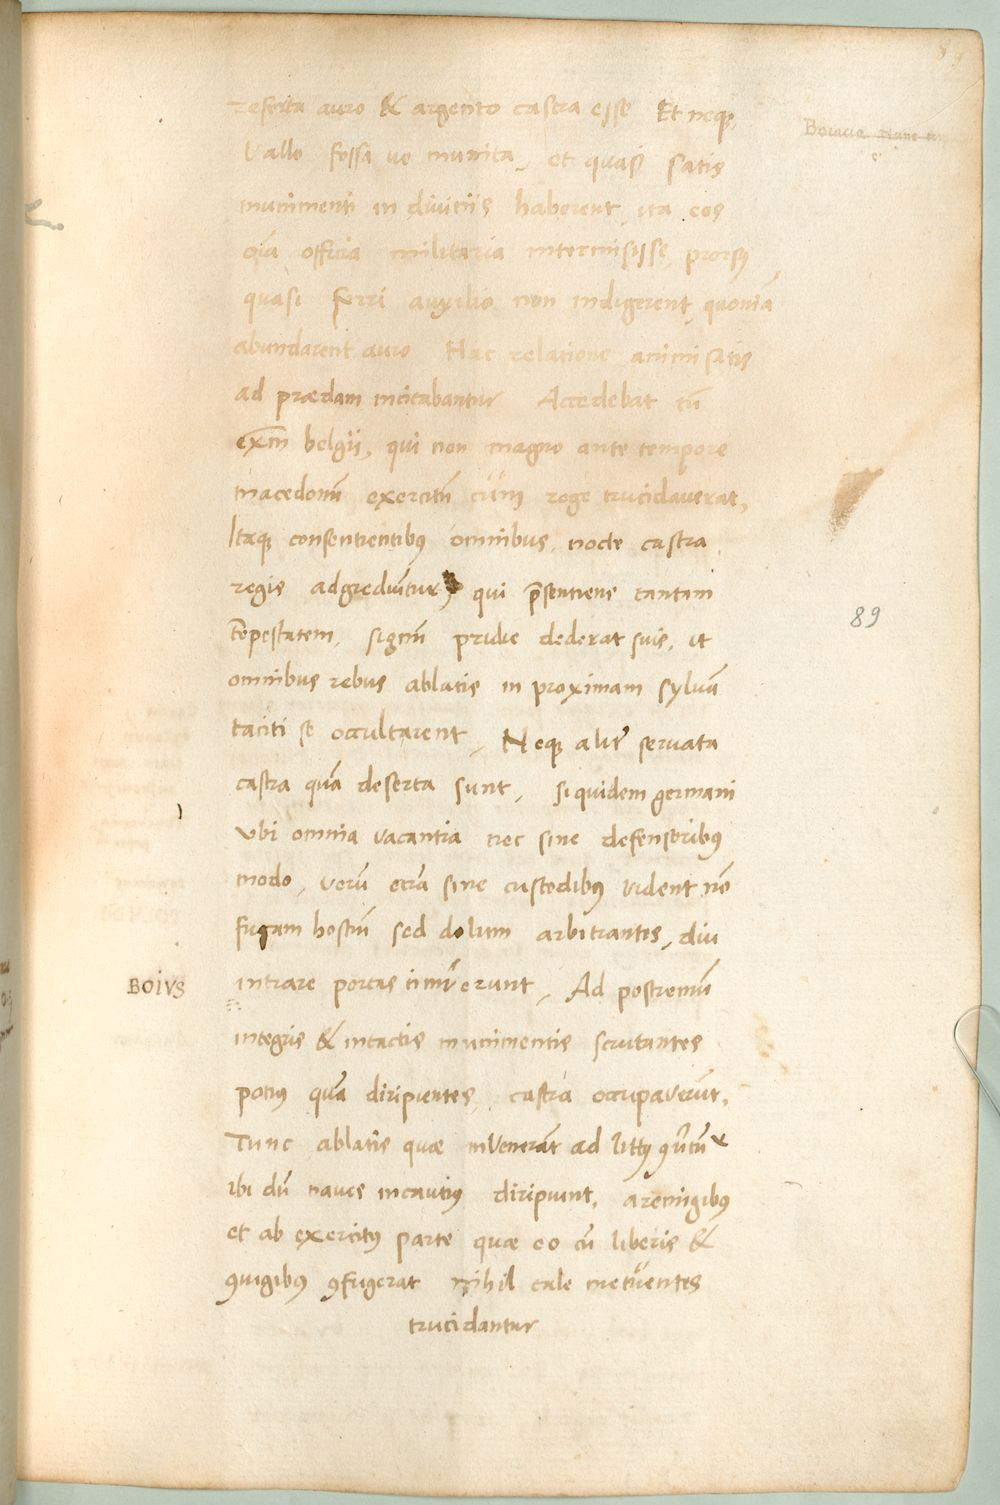 referta auro & argento castra esse Et neqꝫ
Vallo fossa ve munita, et quasi satis
munimenti in diuitiis haberent ita eos
oīa officia militaria intermisisse, prorsꝰ
quasi ferri auxilio non indigerent, quoniā
abundarent auro Hac relatione animi satis
ad praedam incitabantur Accedebat tū
exm̄ belgii, qui non magno ante tempore
macedonū exercitū cum rege trucidauerat,
Itaqꝫ consentientibꝰ omnibus, nocte castra
regis adgrediūtur, qui p̄sentiens tantam
tēpestatem, signū pridie dederat suis, ut
omnibus rebus ablatis in proximam syluā
taciti se occultarent, Neqꝫ alit̄ seruata
castra quā deserta sunt, siquidem germani
Vbi omnia vacantia nec sine defensoribꝰ
modo, verū etiā sine custodibꝰ vident nō
fugam hostiū sed dolum arbitrantes, diu
BOIVS
intrare portas timuerunt, Ad postremū
integris & intactis munimentis scrutantes
potiꝰ quā diripientes, castra occupaverūt,
Tunc ablatis quae invenerāt ad littꝰ
ibi dū naues incautiꝰ diripiunt, a remigibꝰ
et ab exercitꝰ parte quae eo cū liberis &
ꝯiugibꝰ ꝯfugerat nihil tale metuentes
trucidantur
89